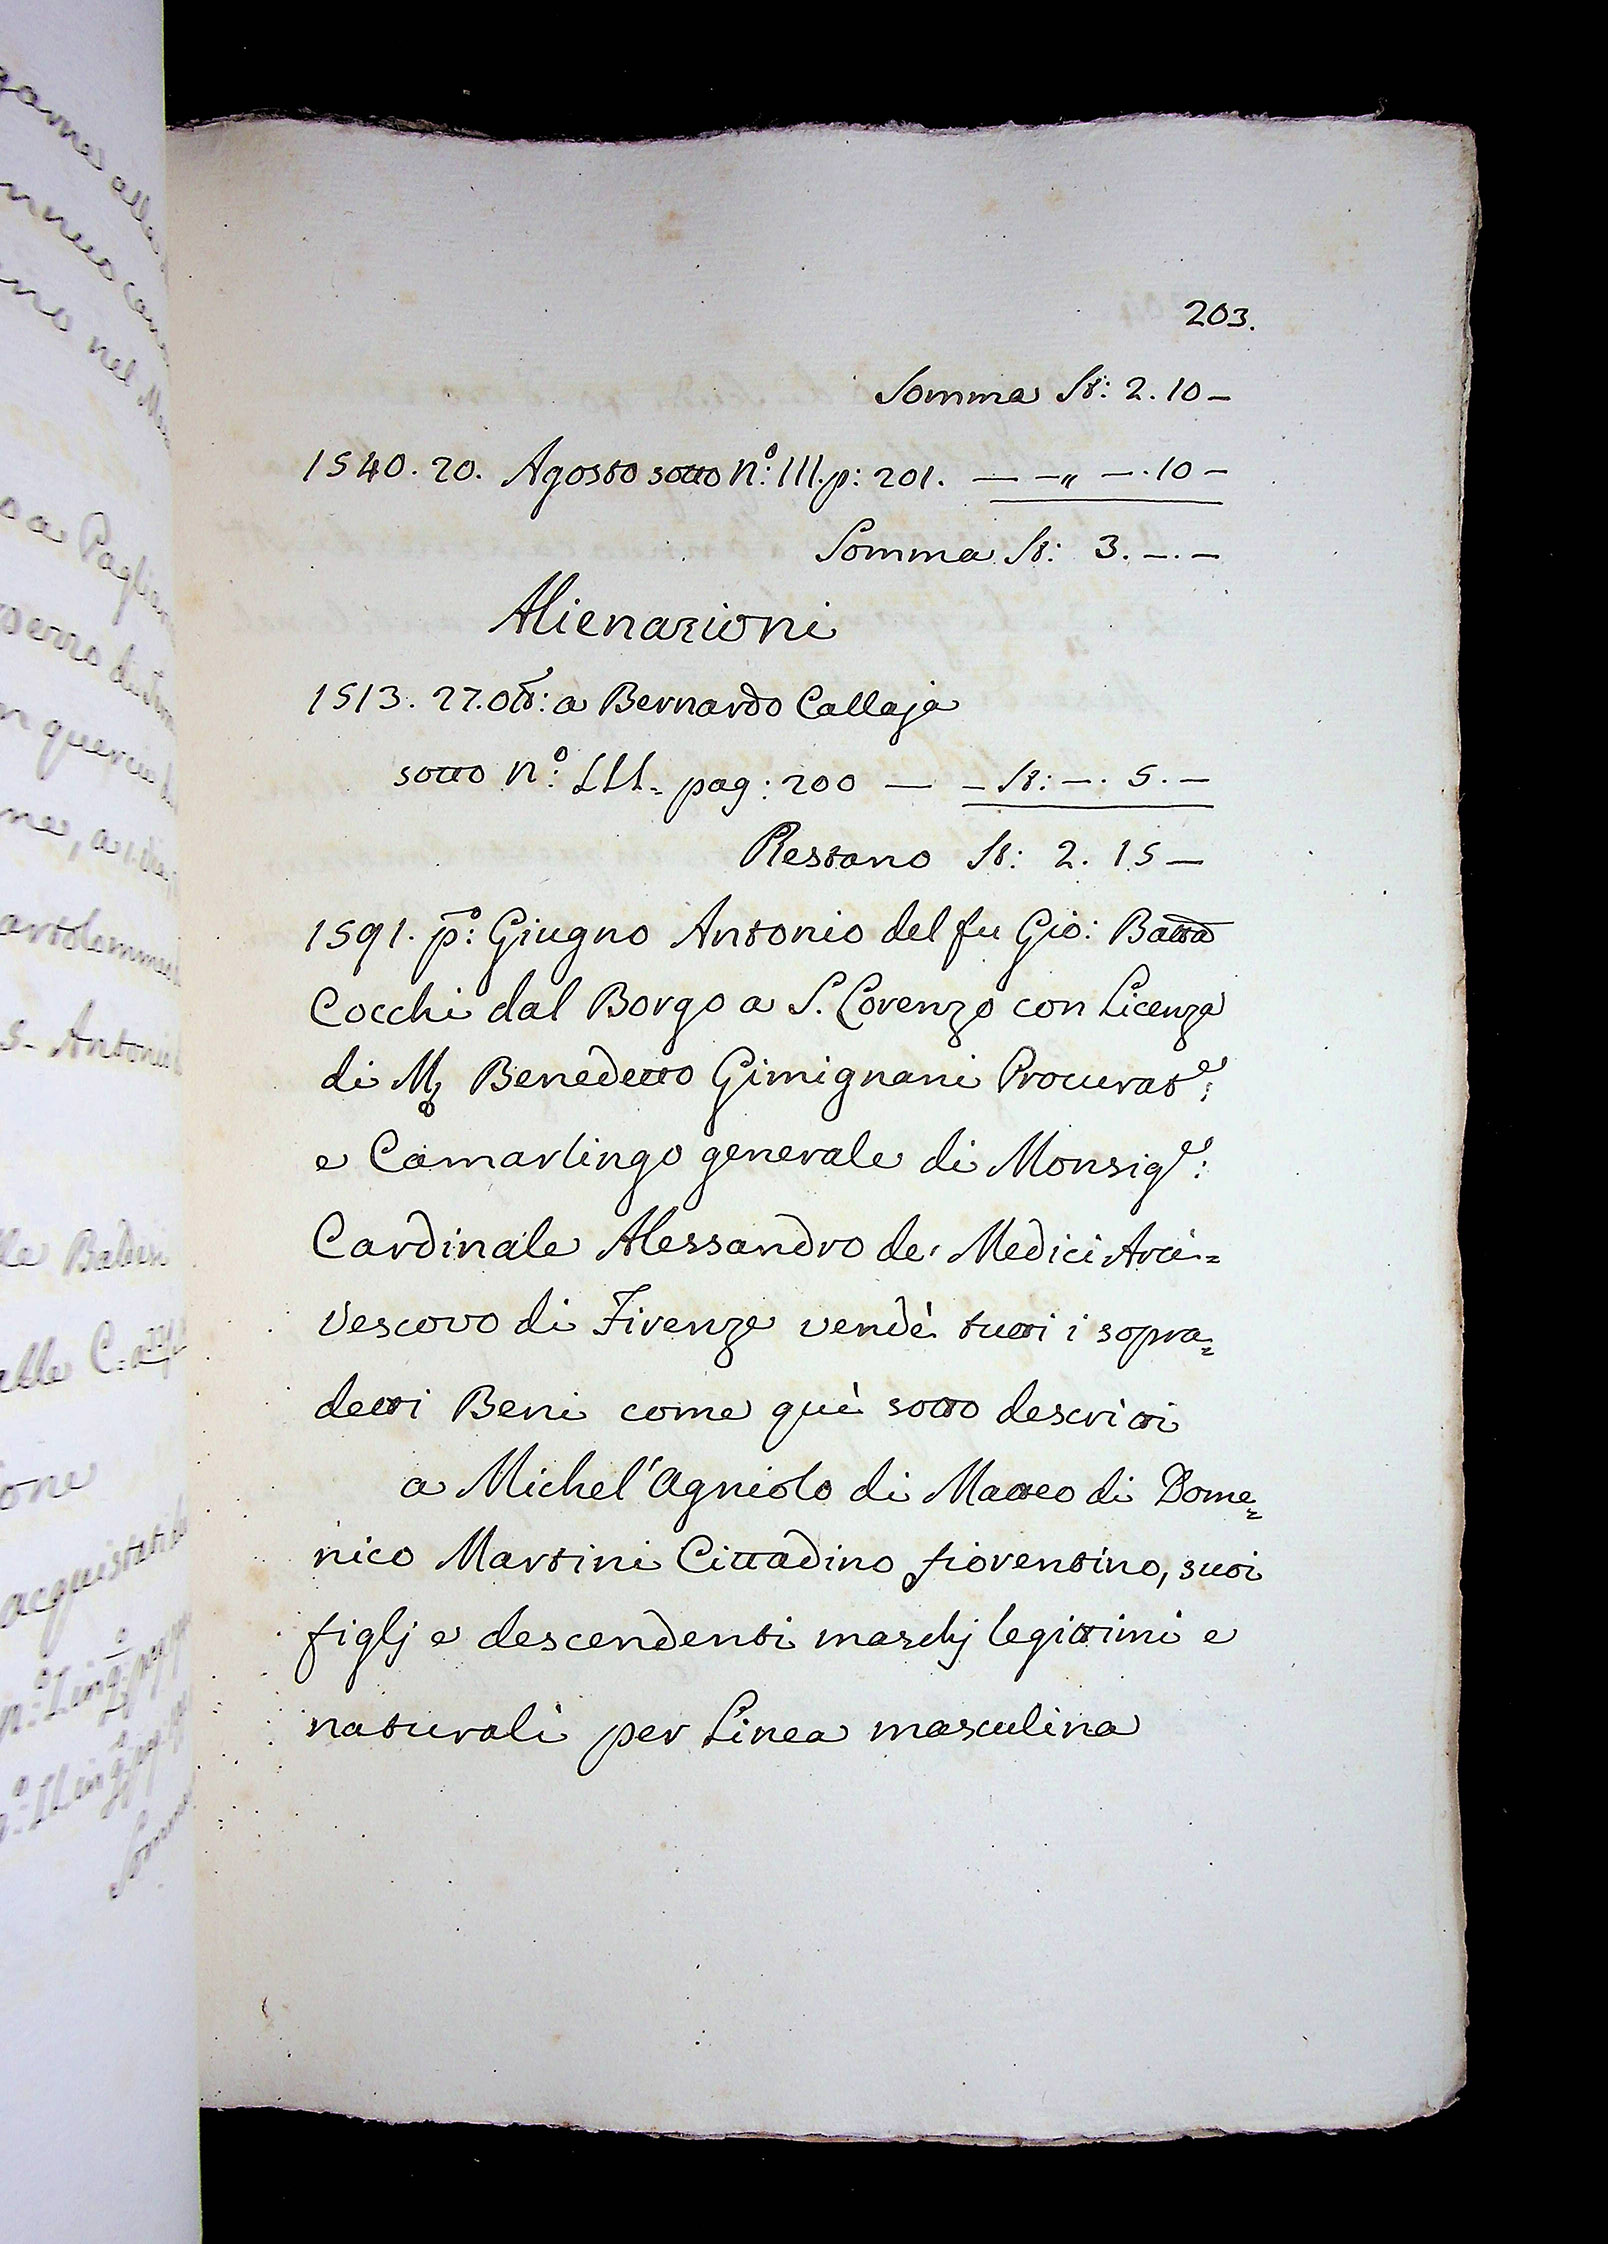 203.
Somma St: 2. 10 –
1540. 20. Agosto sotto N.º: III. p: 201. — – „ — . 10 –
Somma St: 3. – . –
Alienazioni
1513. 27. Ott: a Bernardo Callaja
sotto N.º: III. pag: 200 — – St: – . 5. –
Restano St: 2. 15 –
1591. p.º: Giugno Antonio del fu Gio: Batta
Cocchi dal Borgo a S. Lorenzo con Licenza
di M. Benedetto Gimignani Procurat.e:
e Camarlingo generale di Monsig.e:
Cardinale Alessandro de' Medici Arci=
Vescovo di Firenze vendè tutti i sopra=
detti Beni come quì sotto descritti
a Michel'Agniolo di Matteo di Dome=
nico Martini Cittadino fiorentino, suoi
figlj e descendenti maschj legittimi e
naturali per Linea masculina